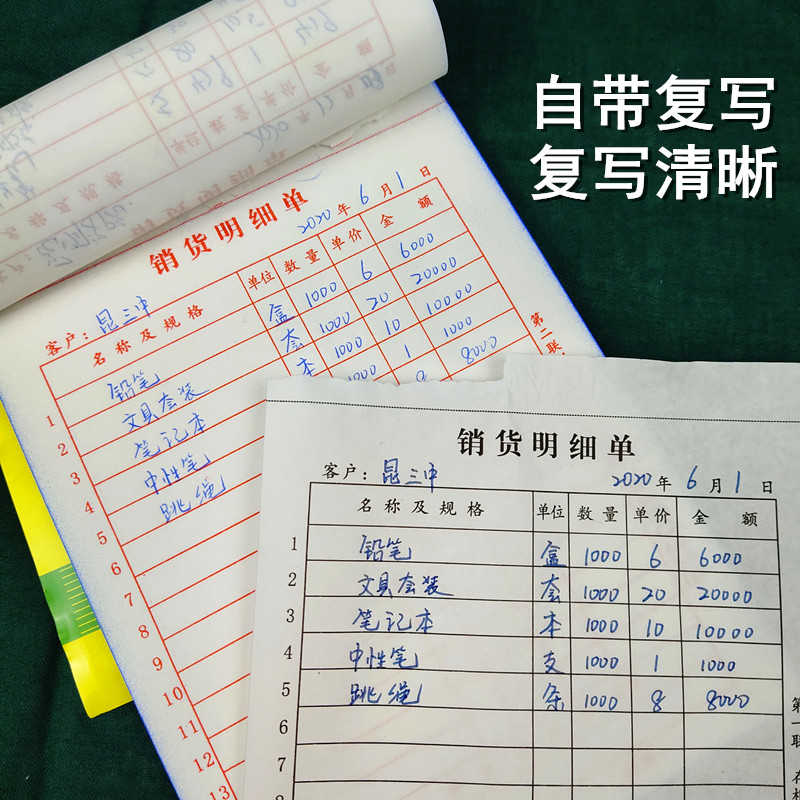 自带复写
复写清晰
销货明细单
2020年6月1日
客户：昆三中
名称及规格 单位 数量 单价 金额
1 铅笔 盒 1000 6 6000
2 文具套装 套 1000 20 20000
3 笔记本 本 1000 10 10000
4 中性笔 1000 1 1000
5 跳绳 8 8000
6
7
8
9
10
11
12
13
第二联
销货明细单
客户：昆三中 2020年6月1日
名称及规格 单位 数量 单价 金额
1 铅笔 盒 1000 6 6000
2 文具套装 套 1000 20 20000
3 笔记本 本 1000 10 10000
4 中性笔 支 1000 1 1000
5 跳绳 条 1000 8 8000
6
7
第一联
存根